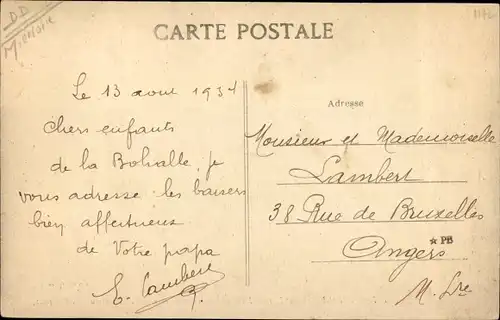 CARTE POSTALE
Le 13 aout 1931
Chers enfants
de la Bohalle je
vous adresse les baisers
bien affectueux
de Votre papa
E. Lambert
Adresse
Monsieur et Mademoiselle
Lambert
38 Rue de Bruxelles
Angers
★ PB
M. Lre